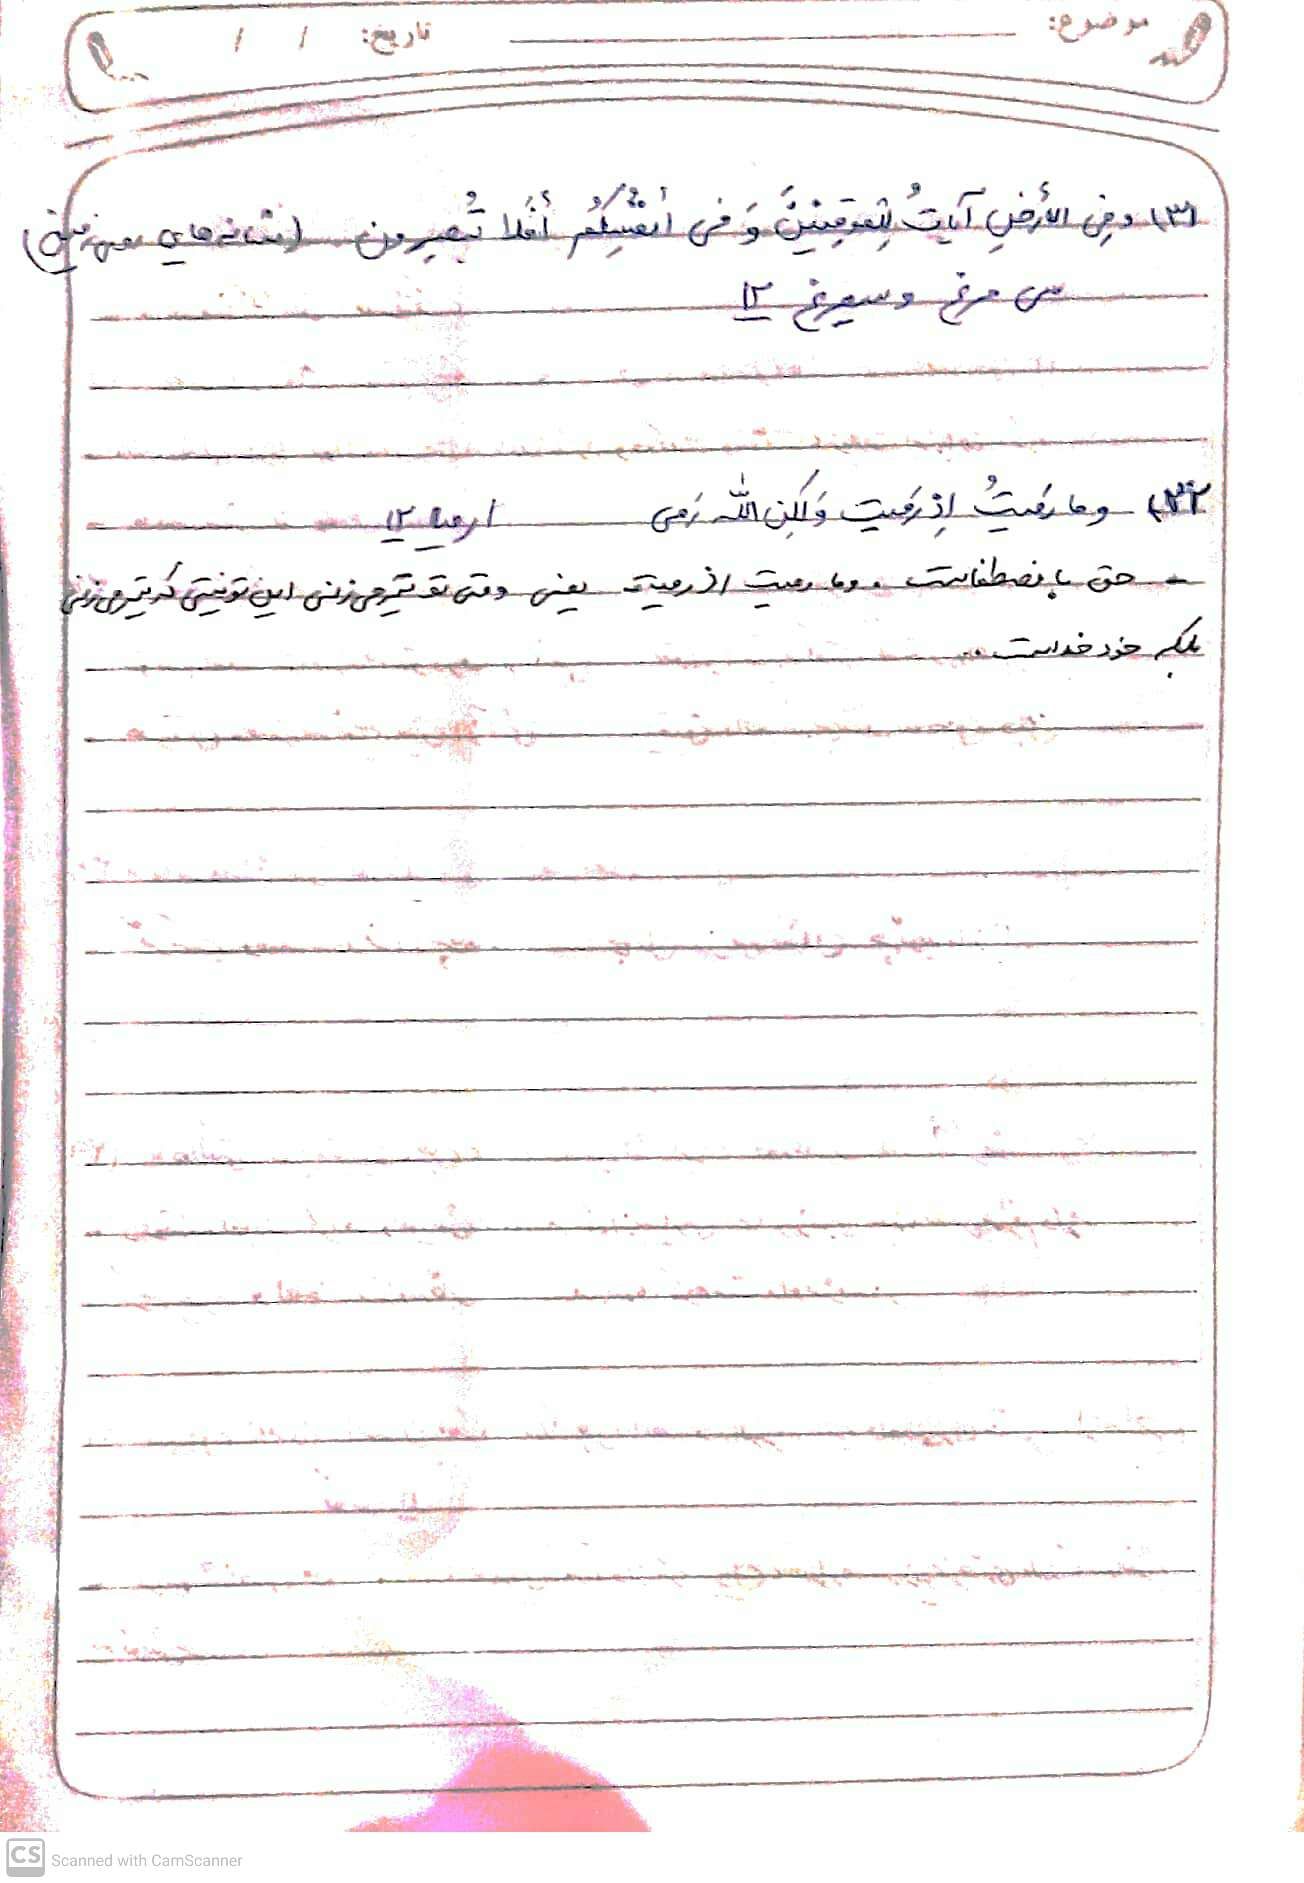 موضوع: تاریخ: / /
۳۱) وفِی الأَرضِ آیاتٌ لِلموقِنینَ وَ فی أنفُسِکُم أَفَلا تُبصِرون (نشانه‌های
سی مرغ و سیمرغ ۱۲
۳۲) وما رَمَیتُ اِذ رَمَیتَ وَلکِن اللّه رَمی ۱۲
- حق با مصطفاست. وما رمیت اذ رمیت یعنی وقتی تو تیر می‌زنی این تو نیستی که تیر می‌زنی
بلکه خود خداست..
CS Scanned with CamScanner